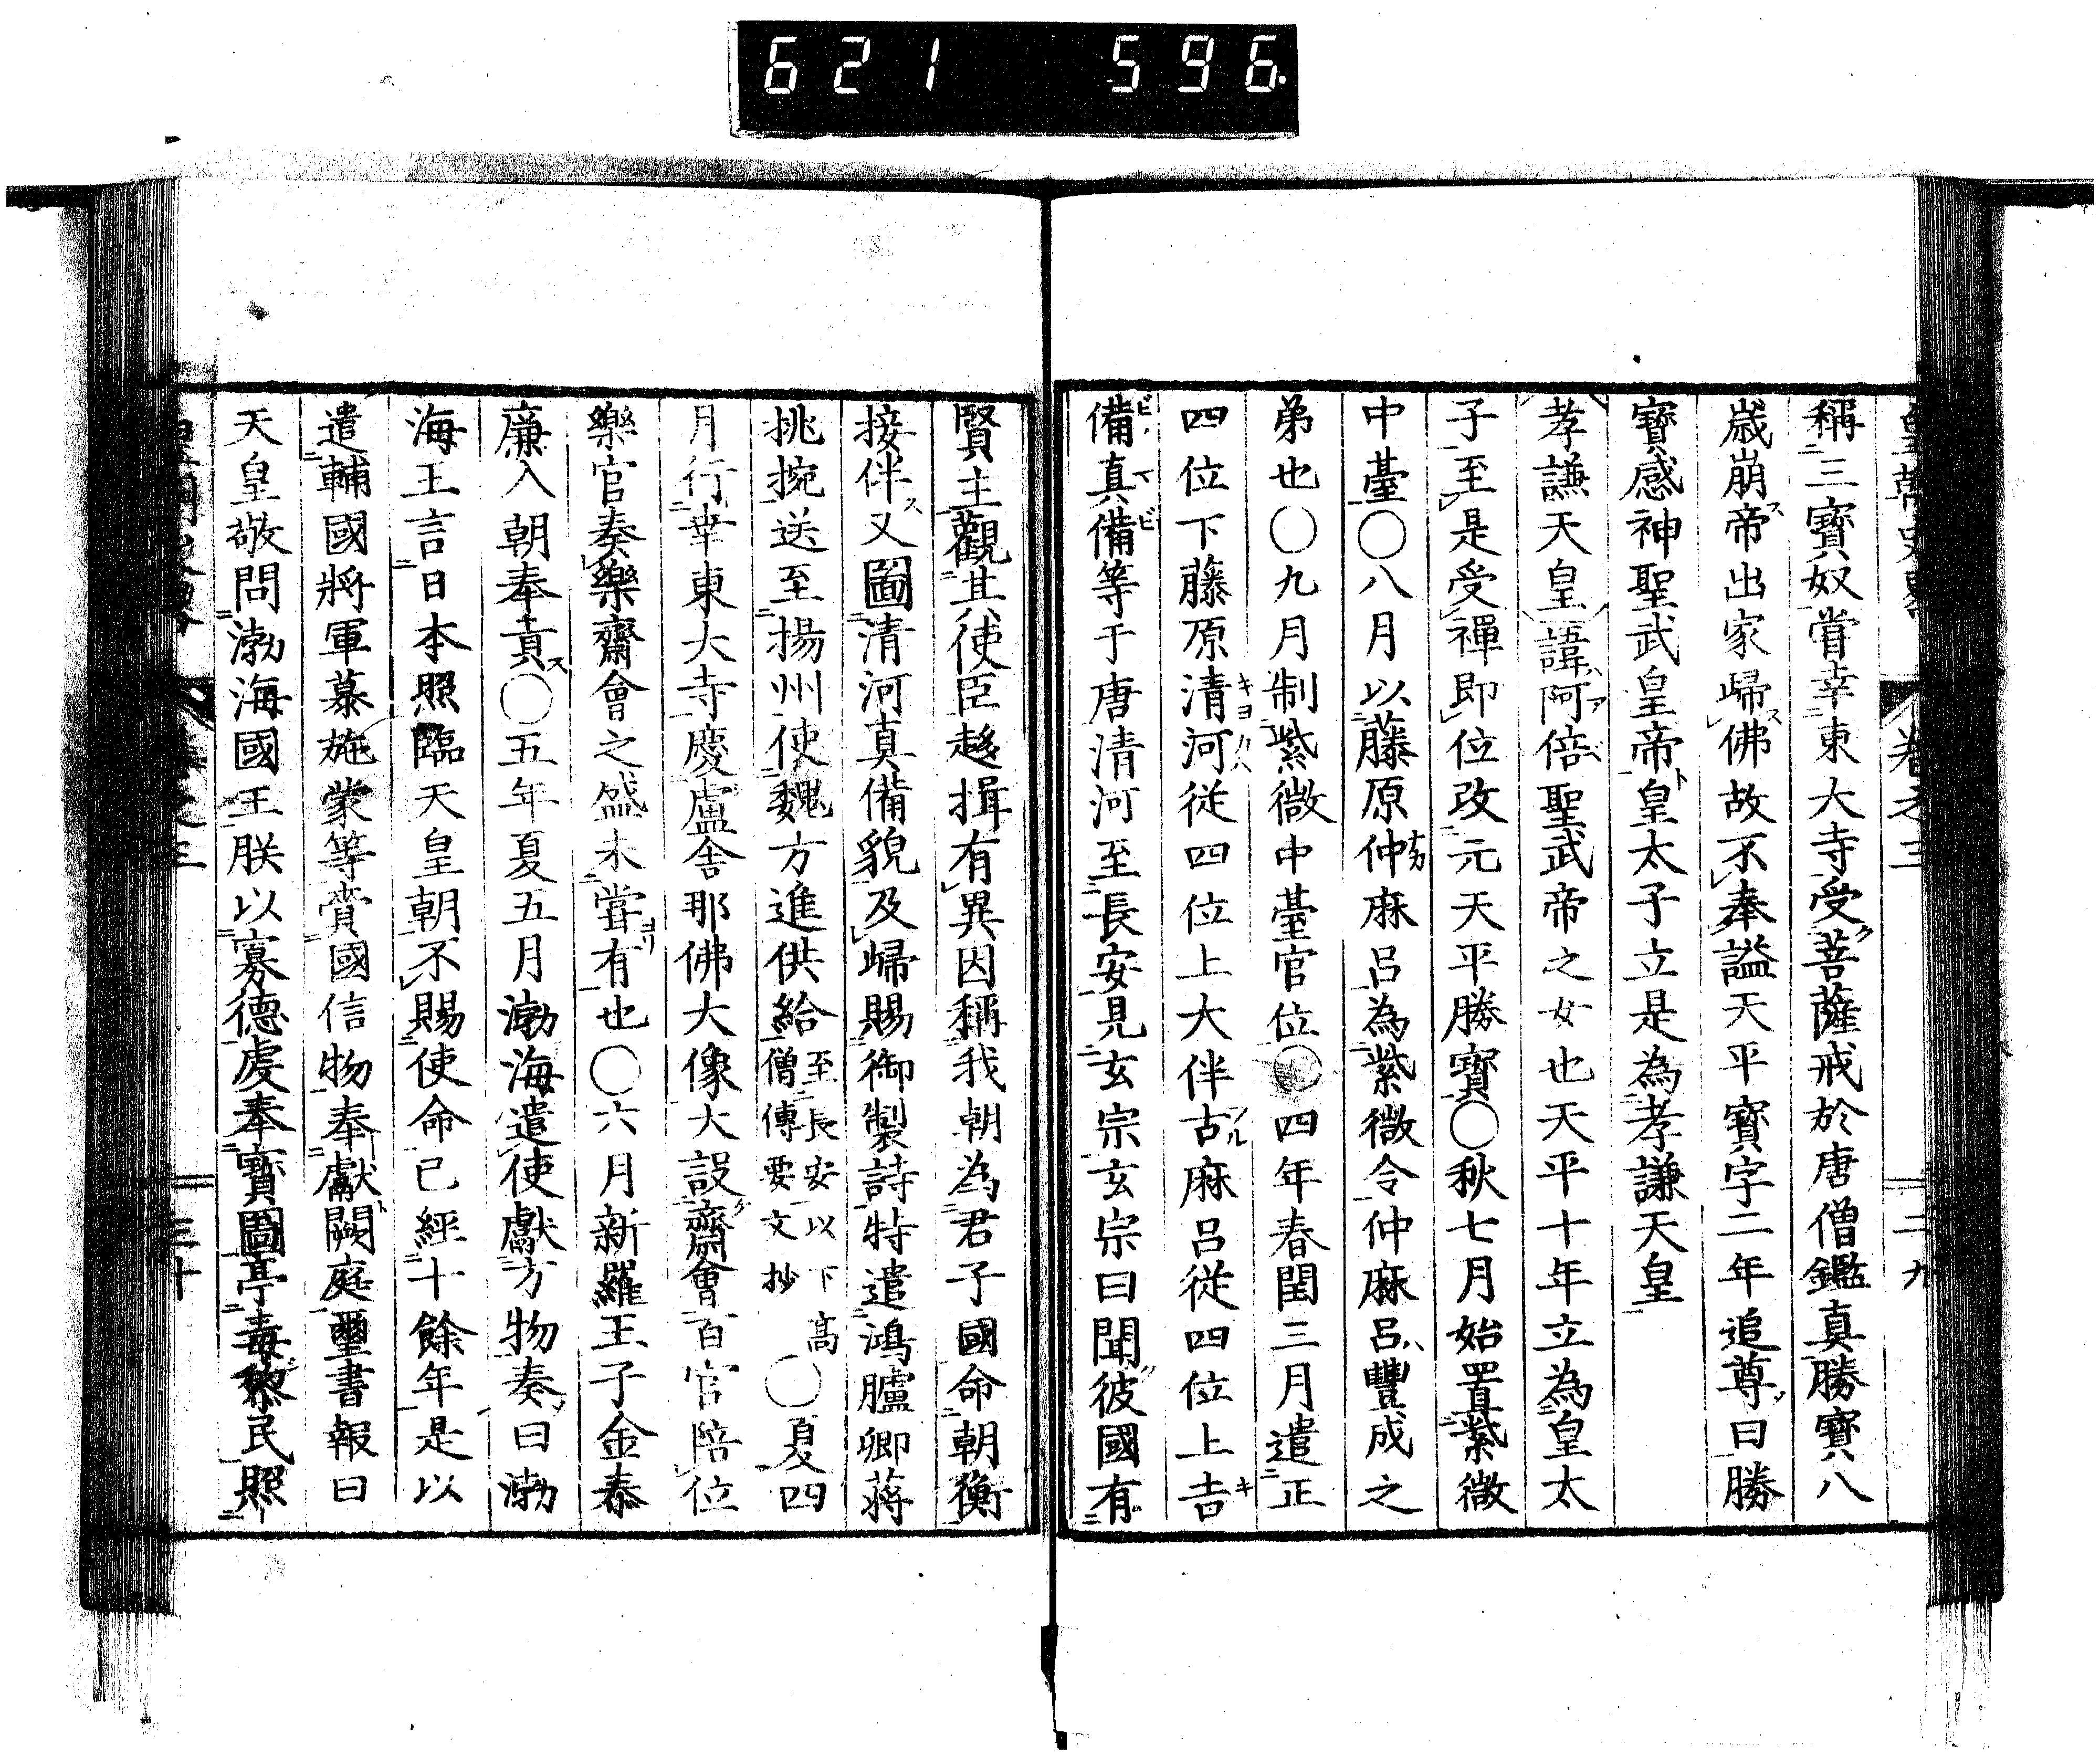 621 596
皇朝史略 卷之三 二十九
稱三寶奴嘗幸東大寺受菩薩戒於唐僧鑑真勝寶八
歲崩帝出家歸佛故不奉謚天平寶字二年追尊曰勝
寶感神聖武皇帝皇太子立是為孝謙天皇
孝謙天皇諱阿倍聖武帝之女也天平十年立為皇太
子至是受禪即位改元天平勝寶〇秋七月始置紫微
中臺〇八月以藤原仲麻呂為紫微令仲麻呂豐成之
弟也〇九月制紫微中臺官位〇四年春閏三月遣正
四位下藤原清河從四位上大伴古麻呂從四位上吉
備真備等于唐清河至長安見玄宗玄宗曰聞彼國有
賢主觀其使臣趍揖有異因稱我朝為君子國命朝衡
接伴又圖清河真備貌及歸賜御製詩特遣鴻臚卿蔣
挑捥送至揚州使魏方進供給至長安以下高僧傳要文抄〇夏四
月行幸東大寺慶盧舍那佛大像大設齋會百官陪位
樂官奏樂齋會之盛未嘗有也〇六月新羅王子金泰
廉入朝奉貢〇五年夏五月渤海遣使獻方物奏曰渤
海王言日本照臨天皇朝不賜使命已經十餘年是以
遣輔國將軍慕施蒙等賫國信物奉獻闕庭璽書報曰
天皇敬問渤海國王朕以寡德虔奉寶圖亭毒黎民照
皇朝史略 卷之三 三十